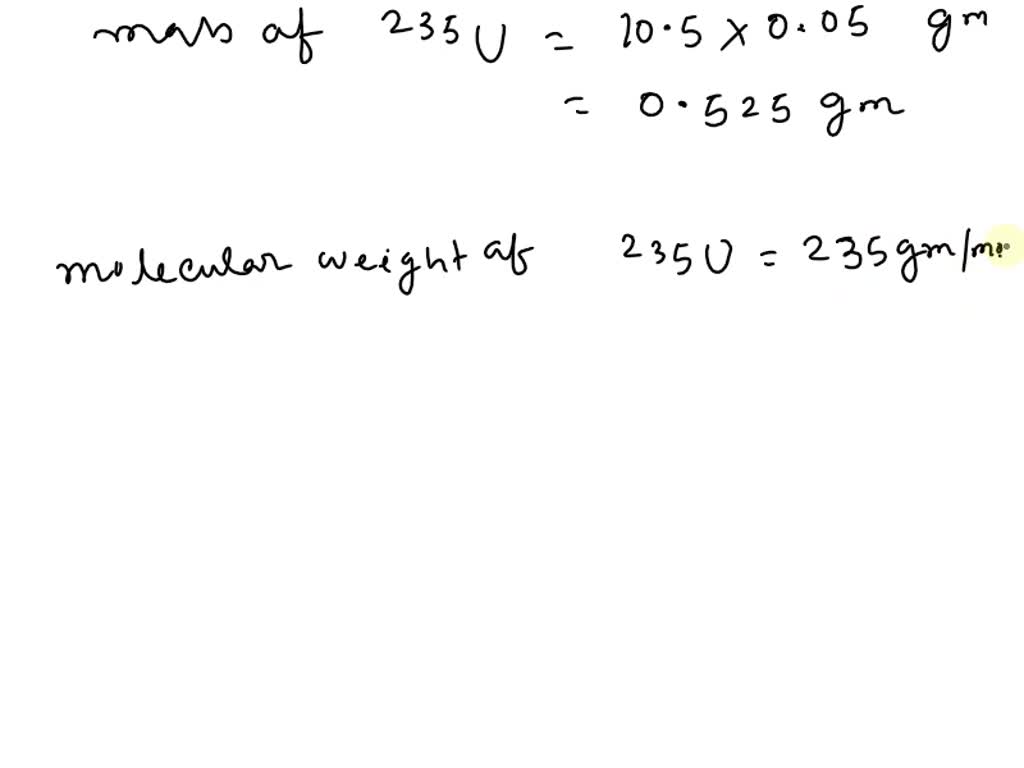 mass of 235U = 10.5 × 0.05 gm
= 0.525 gm
molecular weight of 235U = 235 gm/mo